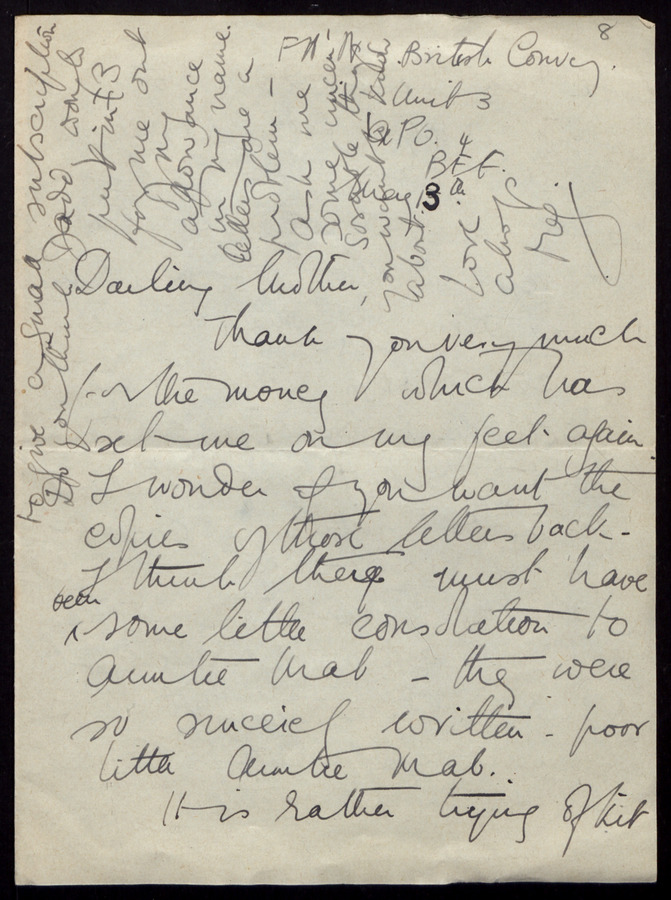 8
British Convoy
Units
G.P.O.
B.E.F.
May 13
Darling Mother,
Thank you very much
for the money which has
set me on my feet again
I wonder if you want the
copies of those letters back -
I think they must have
been
some little consolation to
Auntie Mab - they were
so sincerely written - poor
little Auntie Mab.
It is rather trying of Kit
to give a small subscription
Do you think Dado would
put in £3
for me out
of my
allowance
in my name.
Letters are a
problem -
ask me
some
things
you want to know
about.
Love